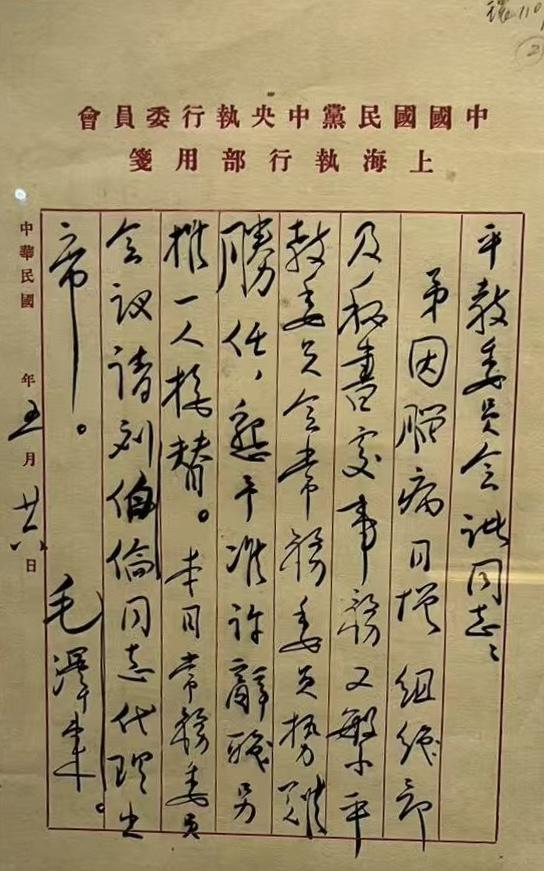 110
2
中國國民黨中央執行委員會
上海執行部用箋
平教委员会諸同志：
弟因腦病日增 组织部
及秘書處事務又繁 平
教委员会常務委员势難
勝任，懇予准许辭职另
推一人接替。本日常務委員
会议请刘伯倫同志代理出
席。
毛澤東。
中華民國 年五月廿六日